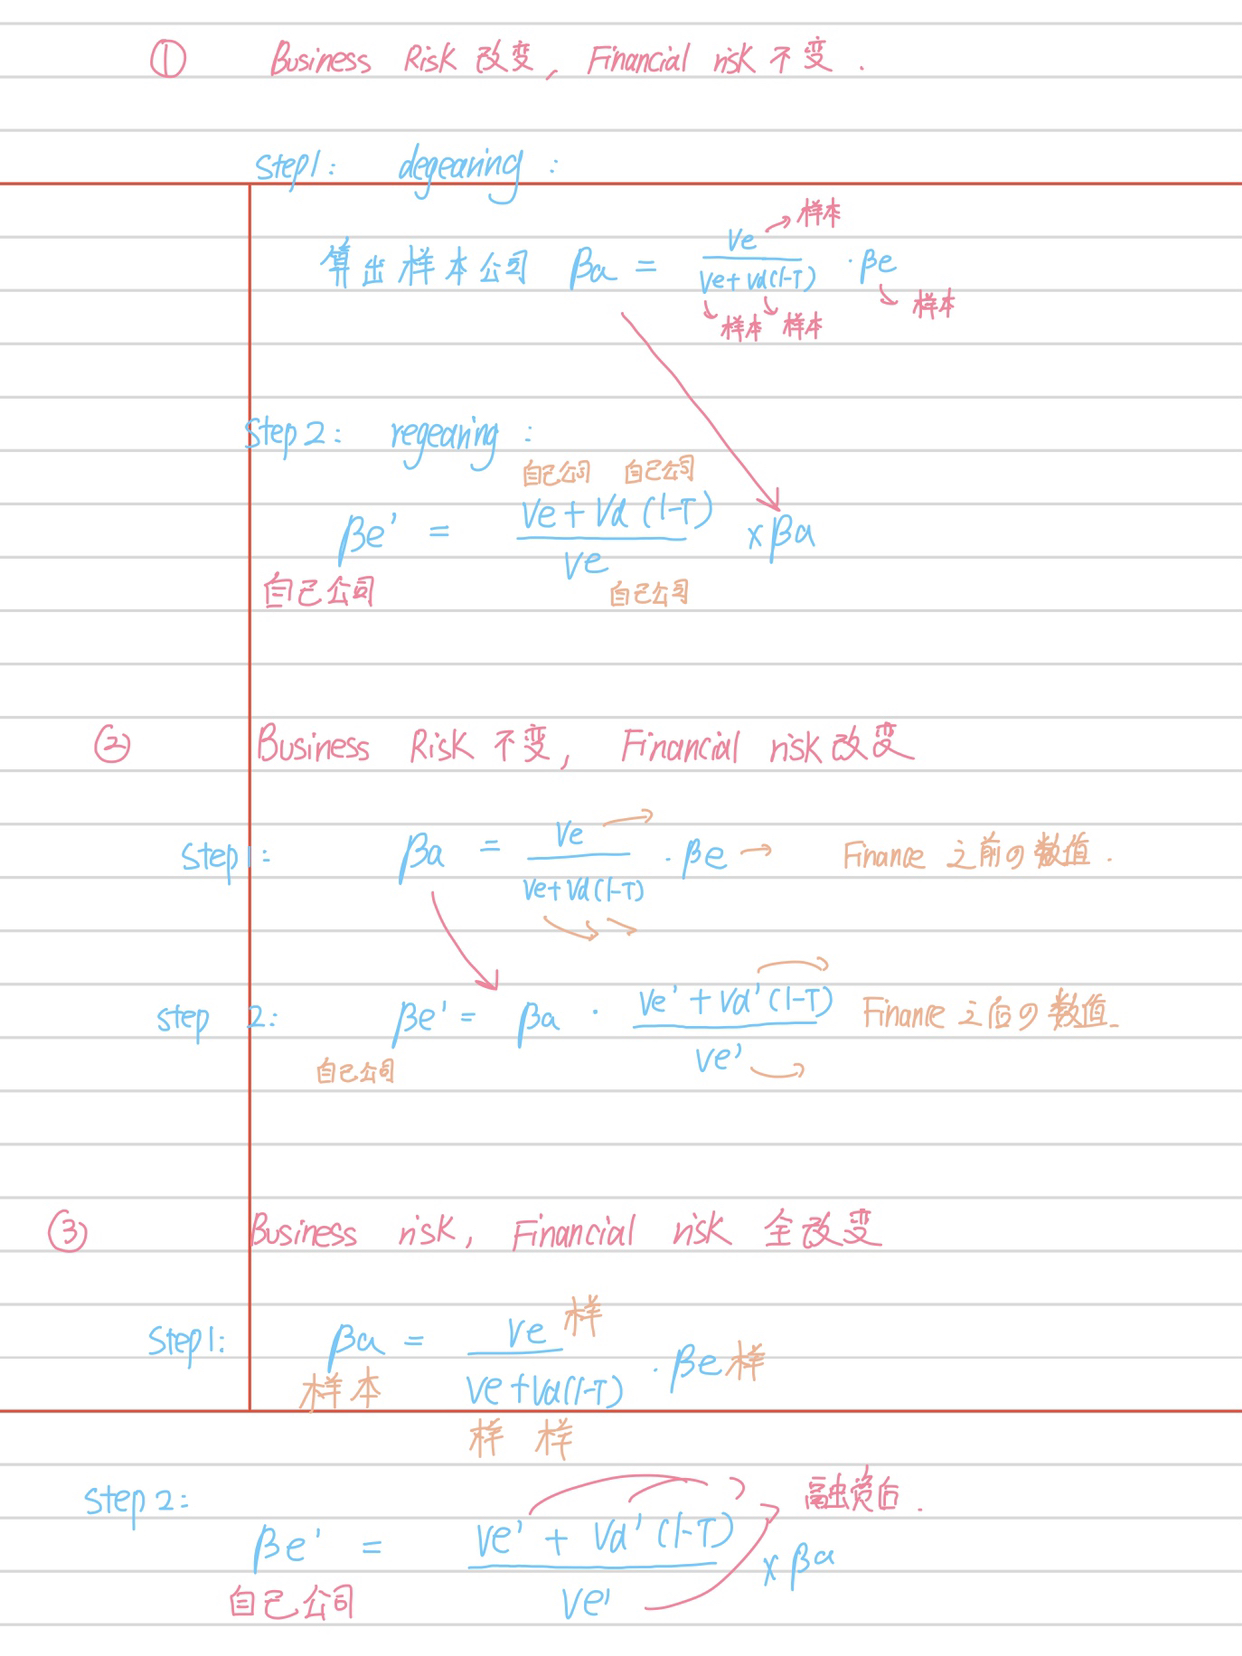 ① Business Risk 改变, Financial risk 不变.
Step1: degearing:
样本
算出样本公司 βa = Ve / Ve+Vd(1-T) · βe
样本 样本 样本
Step2: regearing:
自己公司 自己公司
βe' = Ve+Vd(1-T) / Ve × βa
自己公司 自己公司
② Business Risk 不变, Financial risk 改变
Step1: βa = Ve / Ve+Vd(1-T) · βe → Finance 之前の数值.
step 2: βe' = βa · Ve'+Vd'(1-T) / Ve' Finance 之后の数值.
自己公司
③ Business risk, Financial risk 全改变
Step1: βa = Ve 样 / Ve+Vd(1-T) · βe 样
样本
样 样
Step2: 融资后.
βe' = Ve'+Vd'(1-T) / Ve' × βa
自己公司